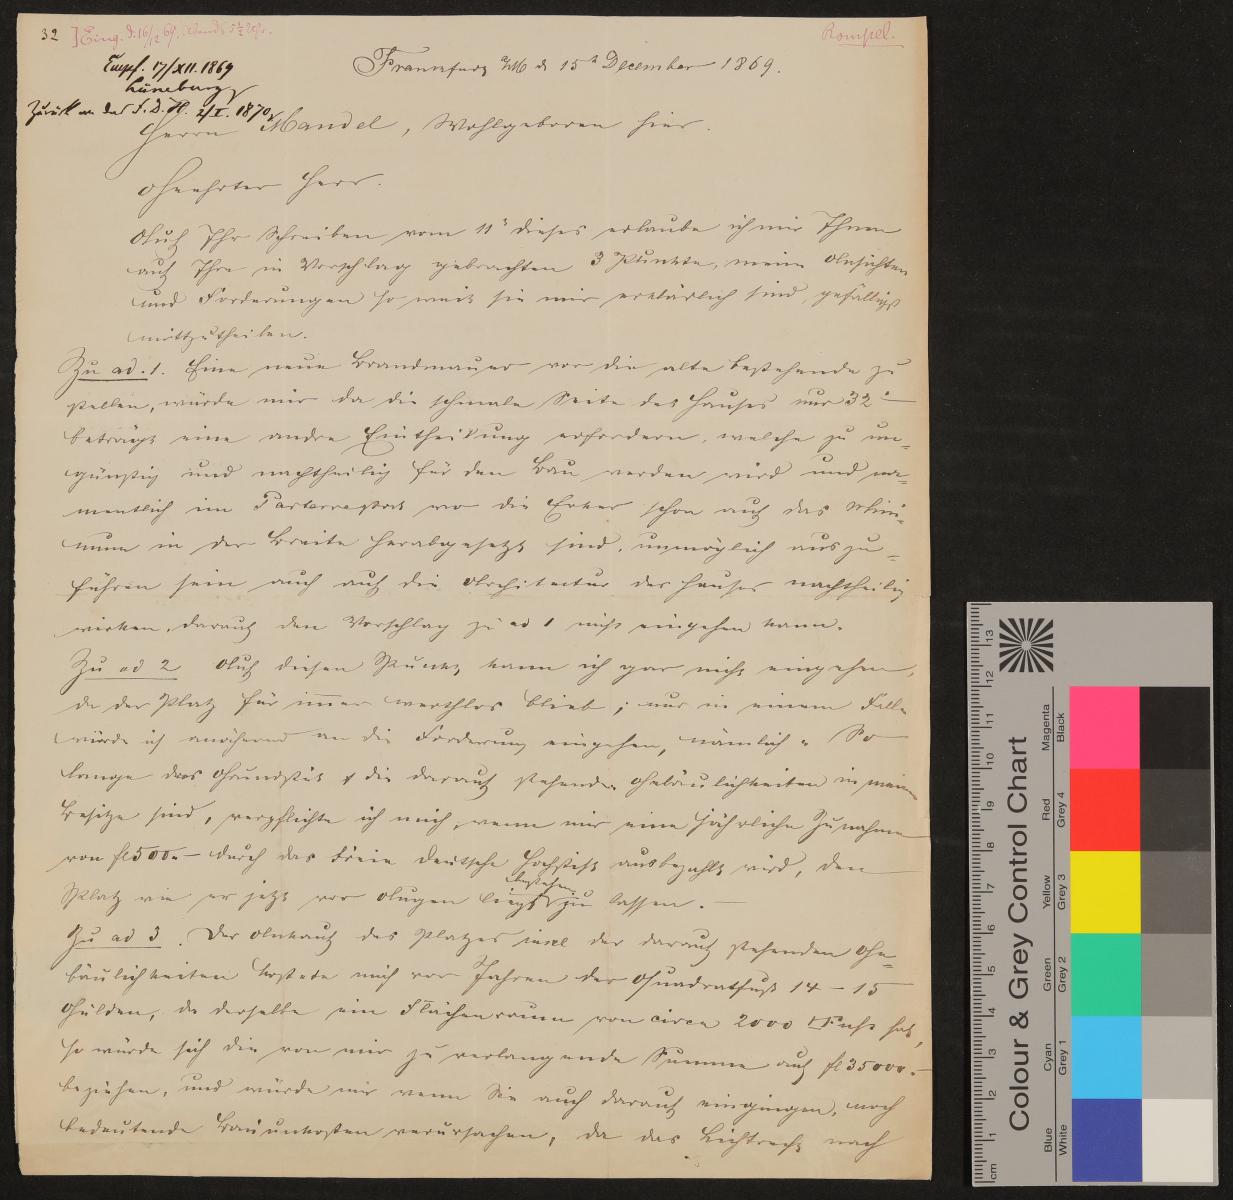 32 ] Eing. d. 16/12 69. Abends 5½ Uhr.
Rompel.
Empf. 17/XII. 1869
Lüneburg
Zurück an das F. D. H. 2/I. 1870.
Frankfurt a/M d 15t December 1869.
Herrn Mandel, Wohlgeboren hier.
Geehrter Herr.
Auf Ihr Schreiben vom 11t dieses erlaube ich mir Ihnen
auf Ihre in Vorschlag gebrachten 3 Punkte, meine Ansichten
und Forderungen so weit sie mir erklärlich sind, gefälligst
mittzutheilen.
Zu ad. 1. Eine neue Brandmauer vor die alte bestehende zu
stellen, würde mir da die schmale Seite des Hauses nur 32'
beträgt eine andre Eintheilung erfordern, welche zu un-
günstig und nachtheilig für den Bau werden wird und na-
mentlich im Parterrestock wo die Erker schon auf das Mini-
mum in der Breite herabgesetzt sind, unmöglich auszu-
führen sein auch auf die Architectur des Hauses nachtheilig
wirken, darauf den Vorschlag zu ad 1 nicht eingehen kann.
Zu ad 2 Auf diesen Punkt, kann ich gar nicht eingehen,
da der Platz für immer werthlos blieb; nur in einem Falle
würde ich annähernd an die Forderung eingehen, nämlich " So
lange das Grundstük & die darauf stehende Gebäulichkeiten in meinem
Besitze sind, verpflichte ich mich, wenn mir eine jährliche Zunahme
von fl 500.- durch das Freie deutsche Hochstift ausbezahlt wird, den
Platz wie er jetzt vor Augen liegt bestehen zu lassen. —
Zu ad 3. Der Ankauf des Platzes incl der darauf stehenden Ge-
bäulichkeiten kostete mich vor Jahren der Quadratfuß 14 - 15
Gulden, da derselbe ein Flächenraum von circa 2000 □Fuß hat,
so würde sich die von mir zu verlangende Summe auf fl 35000.-
beziehen, und würde mir wenn Sie auch darauf eingingen, noch
bedeutende Bauunkosten verursachen, da das Lichtrecht nach
Colour & Grey Control Chart
Blue Cyan Green Yellow Red Magenta
White Grey 1 Grey 2 Grey 3 Grey 4 Black
cm 1 2 3 4 5 6 7 8 9 10 11 12 13